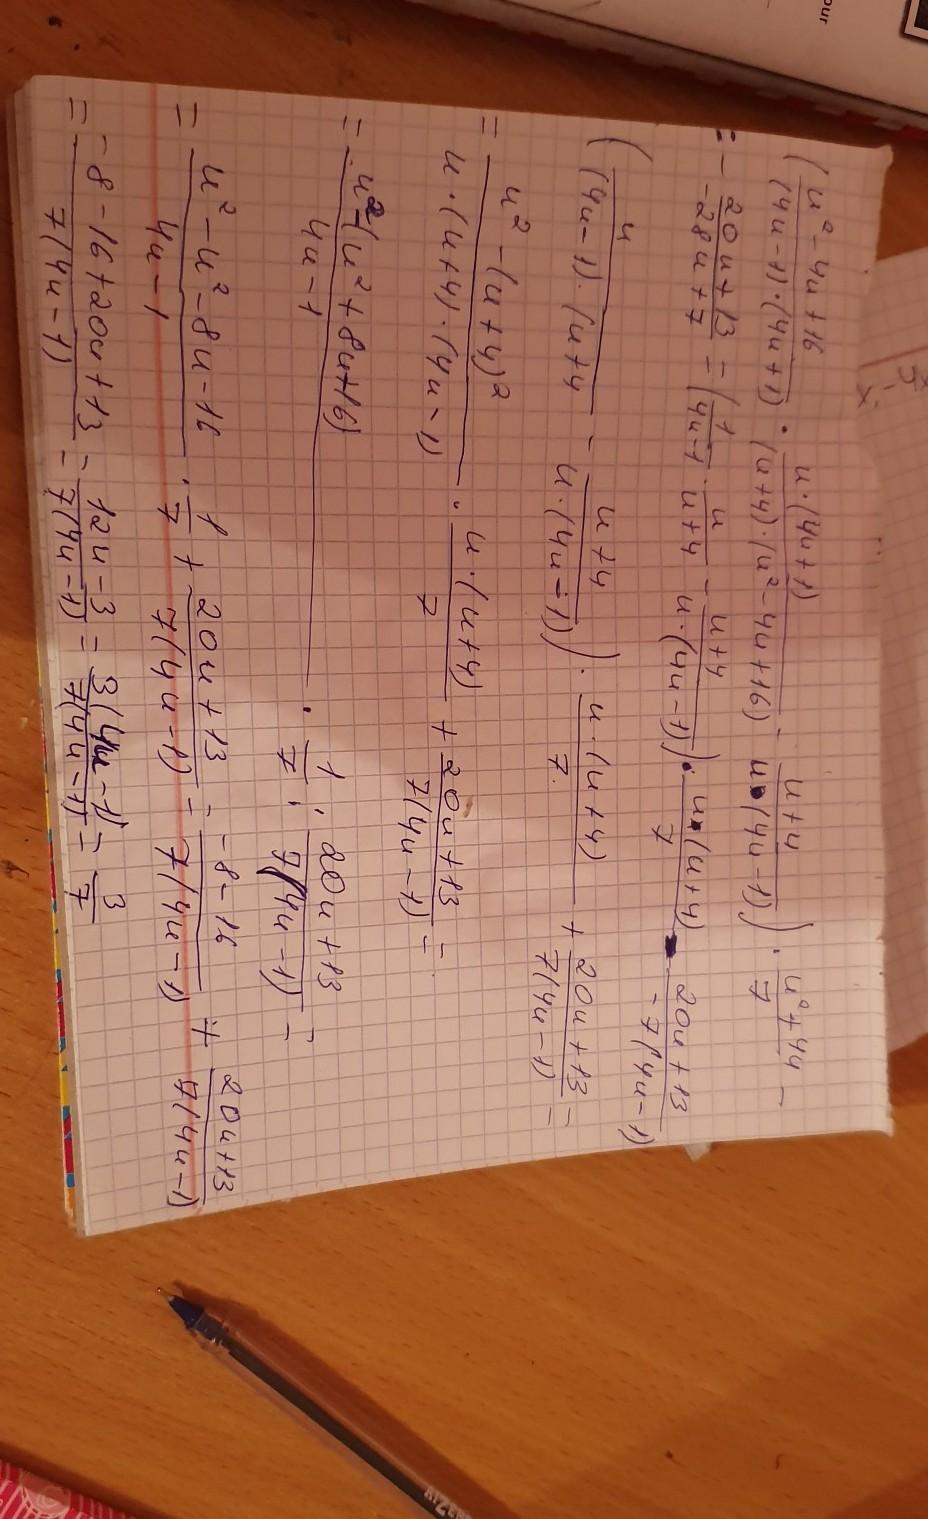 (u² - 4u + 16 / (4u - 1)·(4u + 1) · u·(4u + 1) / (u + 4)·(u² - 4u + 16) - u + 4 / u·(4u - 1)) · u² + 4u / 7 -
= - 20u + 13 / -28u + 7 = (1 / 4u - 1 · u / u + 4 - u + 4 / u·(4u - 1)) · u·(u + 4) / 7 - 20u + 13 / -7(4u - 1)
(u / (4u - 1)·(u + 4 - u + 4 / u·(4u - 1)) · u·(u + 4) / 7 + 20u + 13 / 7(4u - 1) =
= u² - (u + 4)² / u·(u + 4)·(4u - 1) · u·(u + 4) / 7 + 20u + 13 / 7(4u - 1) =
= u² - (u² + 8u + 16) / 4u - 1 · 1 / 7 + 20u + 13 / 7(4u - 1) =
= u² - u² - 8u - 16 / 4u - 1 · 1 / 7 + 20u + 13 / 7(4u - 1) = -8 - 16 / 7(4u - 1) + 20u + 13 / 7(4u - 1)
= -8 - 16 + 20u + 13 / 7(4u - 1) = 12u - 3 / 7(4u - 1) = 3(4u - 1) / 7(4u - 1) = 3 / 7
our